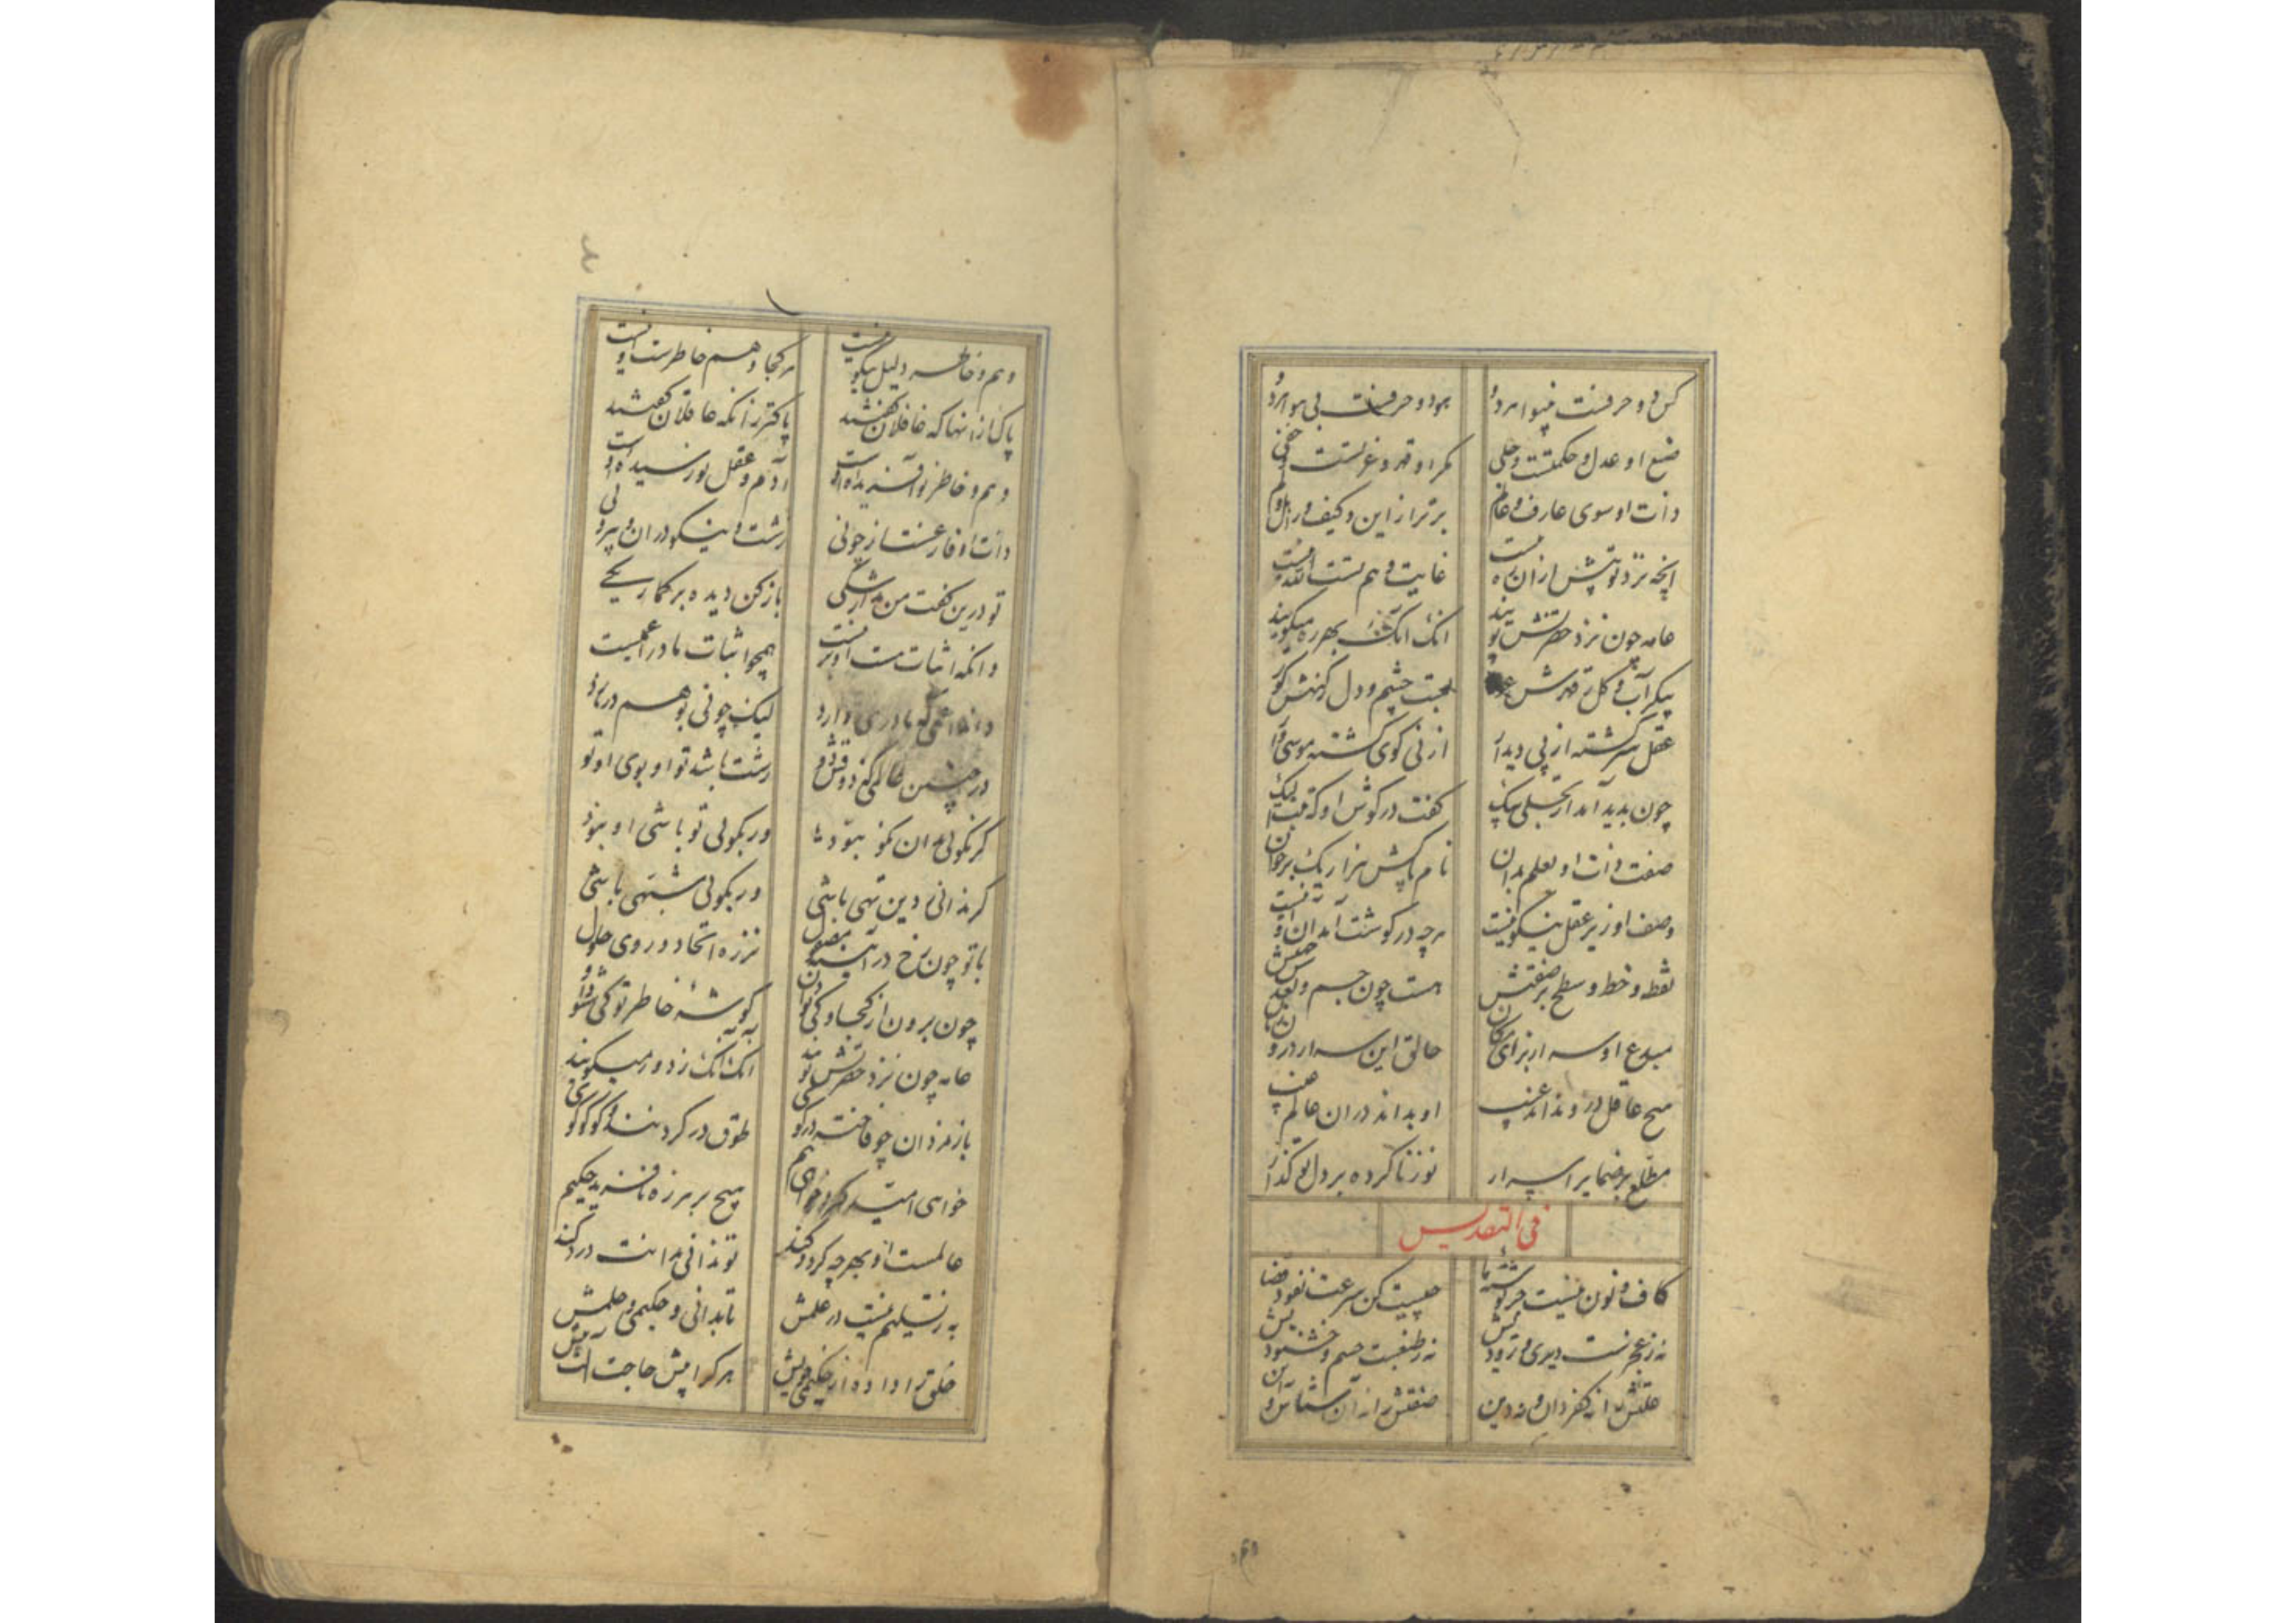 کن دو حرفست بینوا هر دو هو دو حرفست بی هوا هر دو
صنع او عدل و حکمتست و جلی مکر او قهر و عزتست و خفی
ذات او سوی عارف و عالم برتر از این و کیف و از هل و لم
انچه نزد تو بیش ازان ره نیست غایت وهم تست الله نیست
عامه چون نزد حضرتش پویند انک انک بهرزه میگویند
پیکر آب و گل ز قهرش عور لعبت چشم و دل ز کنهش کور
عقل سرگشته از پی دیدار ارنی گوی گشته موسی وار
چون بدید آمد از تجلی پیک گفت در گوش او که تبت الیک
صفت ذات او بعلم بدان نام پاکش هزار و یک برخوان
وصف او زیر عقل نیکو نیست هرچه در گوشت آمد آن او نیست
نقطه و خط و سطح بر صفتش هست چون جسم و بعد و جهتش
مبدع او سه از برای مکان خالق این سه از درون
هیچ عاقل درو نداند عیب او بداند درون عالم غیب
مطلع بر ضمایر اسرار نوز ناکرده بر دل تو گذار
فی التقدیس
کاف و نون نیست جز نوشته ما چیست کن سرعت نفود قضا
نه ز عجزست دیری و زودیش نه ز طبعست خشم و خشنودیش
علتش را نه کفر دان و نه دین صفتش را نه آن شناس و نه این
وهم و خاطر دلیل نیکو نیست هر کجا وهم خاطرست او نیست
پاک ازانها که غافلان گفتند پاکتر زانکه عاقلان گفتند
وهم و خاطر نو آفریده اوست آدم و عقل نو رسیده اوست
ذات او فارغست از چونی زشت و نیکو دران و بیرونی
تو درین گفت من مدار شکی باز کن دیده بر گمار یکی
وانکه اثبات هست او بر نیست همچو اثبات مادر اعمیست
داند اعمی که مادری دارد لیک چونی بوهم در نارد
در چنین عالمی که دو
زشت باشد تو او بوی او تو
گر نگوئی بدان نکو نبود ور بگوئی تو باشی او نبود
گر ندانی ز دین تهی باشی ور بگوئی مشبهی باشی
با تو چون رخ در آینه مصقول نز ره اتحاد و روی حلول
چون برون از کجا و کی بود او گوشه خاطر تو کی شود او
عامه چون نزد حضرتش پویند انک انک ز دور میگویند
بازمردان چو فاخته در کو طوق در گردنند کوکوگوی
خواهی امید گیر و خواهی بیم هیچ بر هرزه نافرید حکیم
عالمست او بهرچه کرد و کند تو ندانی بدانت درد کند
به ز تسلیم نیست در علمش تا بدانی حکیمی و حلمش
خلق را داده از حکیمی خویش هر کرا بیش حاجت آلت بیش